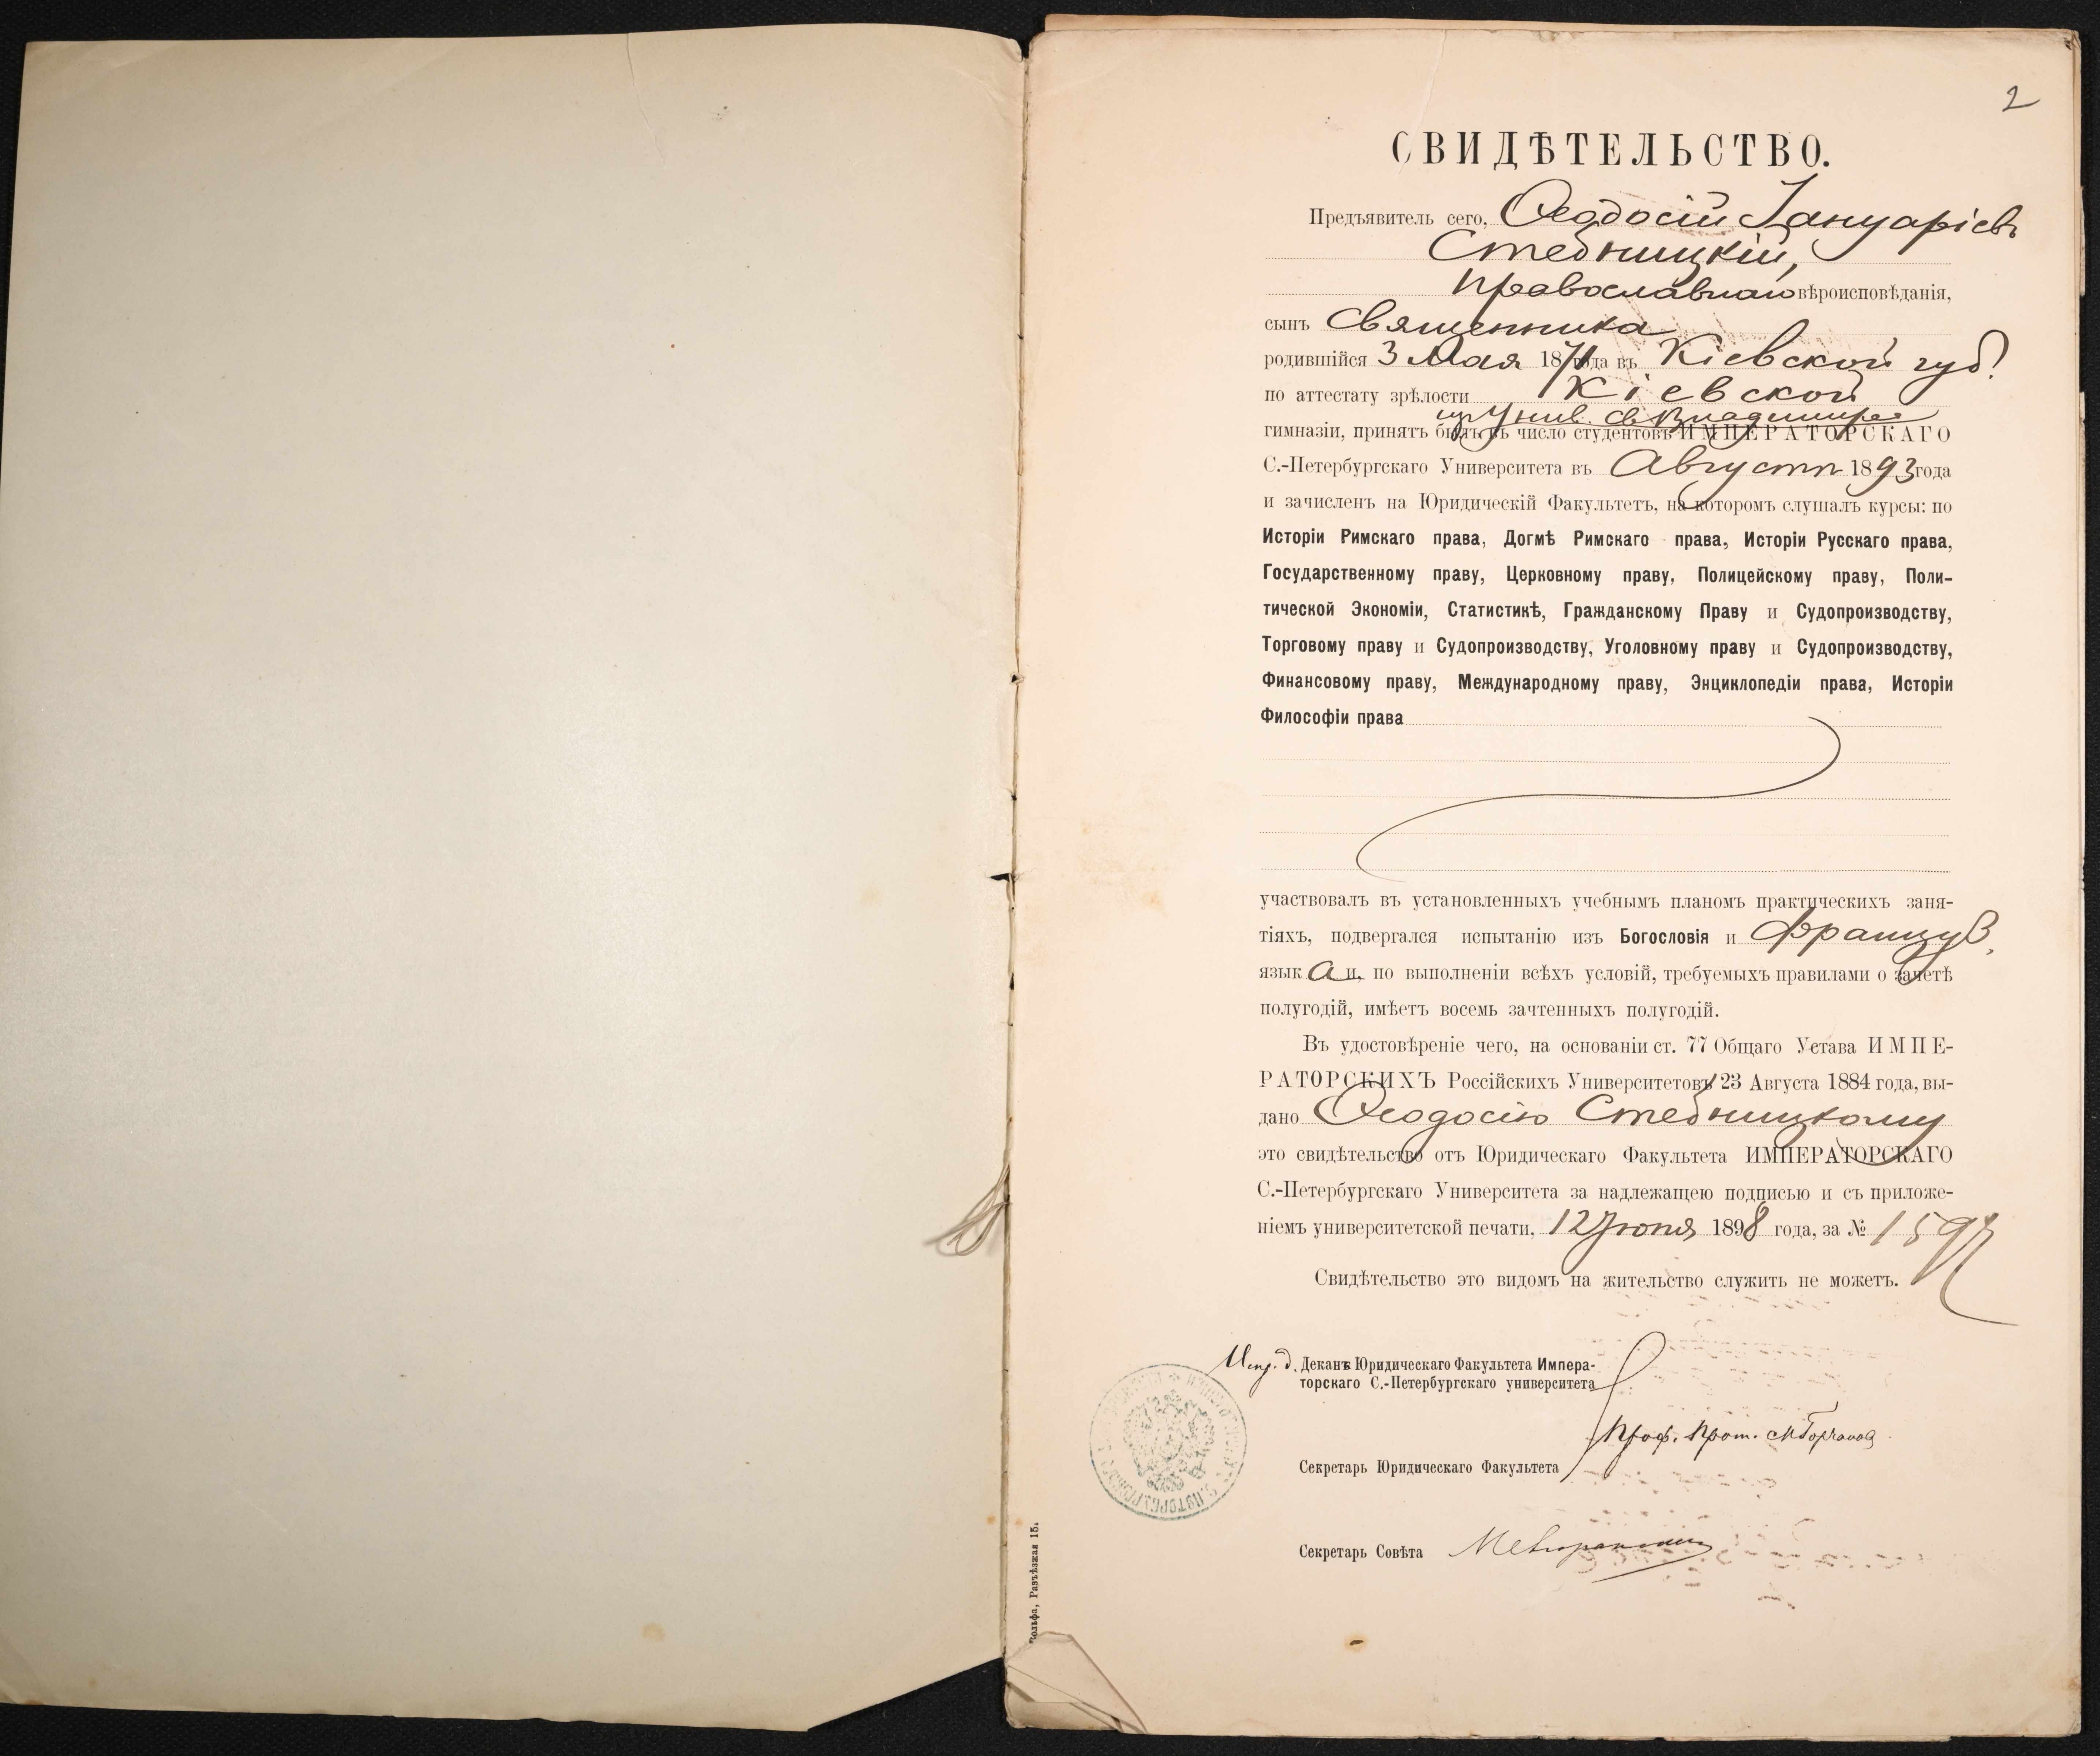 2
СВИДѢТЕЛЬСТВО.
Предъявитель сего, Ѳеодосій Іануаріевъ
Стебницкій,
православнаго вѣроисповѣданія,
сынъ Священника
родившійся 3 Мая 1871 года въ Кіевской губ.
по аттестату зрѣлости Кіевской
из Унив. Св. Владимира
гимназіи, принятъ былъ въ число студентовъ ИМПЕРАТОРСКАГО
С.-Петербургскаго Университета въ Августѣ 1893 года
и зачисленъ на Юридическій Факультетъ, на которомъ слушалъ курсы: по
Исторіи Римскаго права, Догмѣ Римскаго права, Исторіи Русскаго права,
Государственному праву, Церковному праву, Полицейскому праву, Поли-
тической Экономіи, Статистикѣ, Гражданскому Праву и Судопроизводству,
Торговому праву и Судопроизводству, Уголовному праву и Судопроизводству,
Финансовому праву, Международному праву, Энциклопедіи права, Исторіи
Философіи права
участвовалъ въ установленныхъ учебнымъ планомъ практическихъ заня-
тіяхъ, подвергался испытанію изъ Богословія и Француз.
язык а и, по выполненіи всѣхъ условій, требуемыхъ правилами о зачетѣ
полугодій, имѣетъ восемь зачтенныхъ полугодій.
Въ удостовѣреніе чего, на основаніи ст. 77 Общаго Устава ИМПЕ-
РАТОРСКИХЪ Россійскихъ Университетовъ 23 Августа 1884 года, вы-
дано Ѳеодосію Стебницкому
это свидѣтельство отъ Юридическаго Факультета ИМПЕРАТОРСКАГО
С.-Петербургскаго Университета за надлежащею подписью и съ приложе-
ніемъ университетской печати, 12 Іюня 1898 года, за № 1597
Свидѣтельство это видомъ на жительство служить не можетъ.
Исп. д. Деканъ Юридическаго Факультета Импера-
торскаго С.-Петербургскаго университета
Проф. Прот. М Горчаков
Секретарь Юридическаго Факультета
Секретарь Совѣта
Вольфа, Разъѣзжая 15.